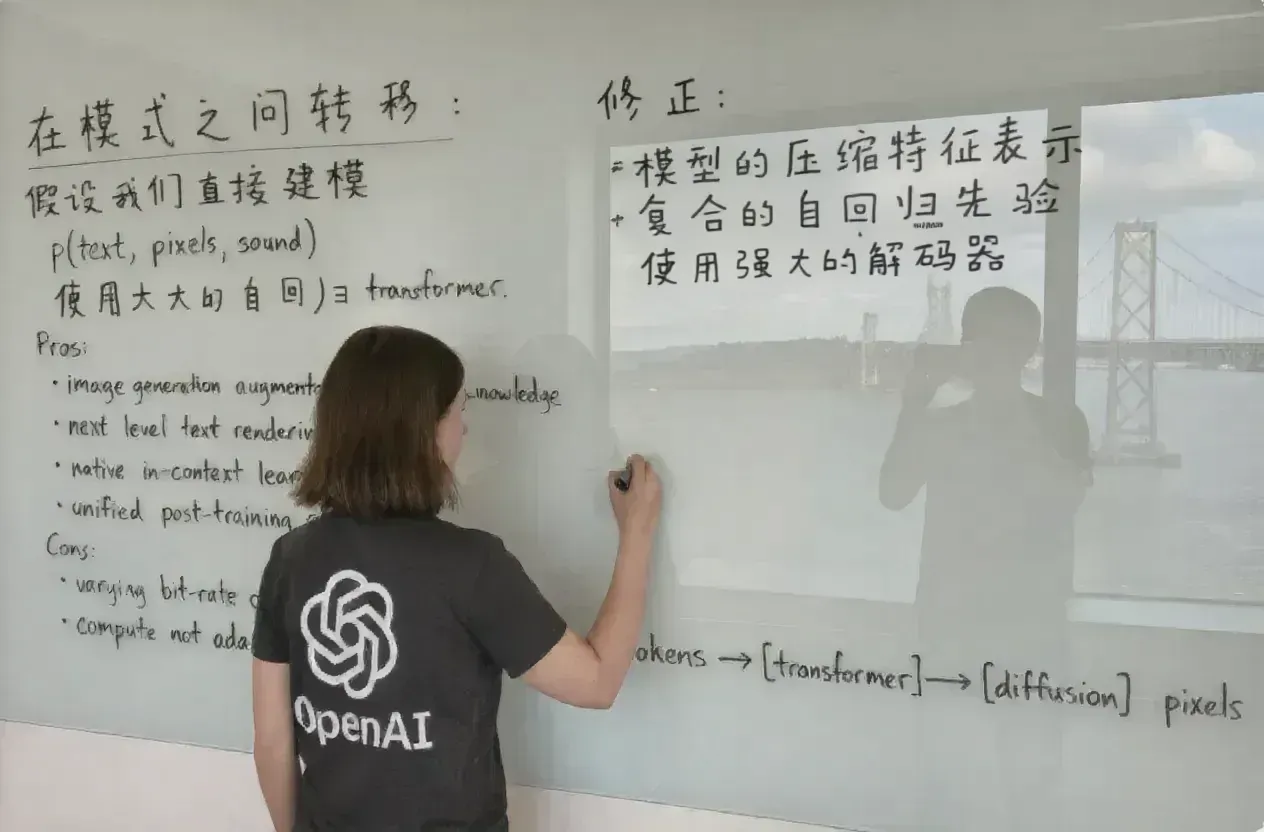 在模式之间转移:
假设我们直接建模
p(text, pixels, sound)
使用大大的自回归 transformer.
Pros:
• image generation augmente knowledge
• next level text renderin
• native in-context lear
• unified post-training
Cons:
• varying bit-rate
• compute not ada
修正:
= 模型的压缩特征表示
+ 复合的自回归先验
使用强大的解码器
okens → [transformer] → [diffusion] pixels
OpenAI